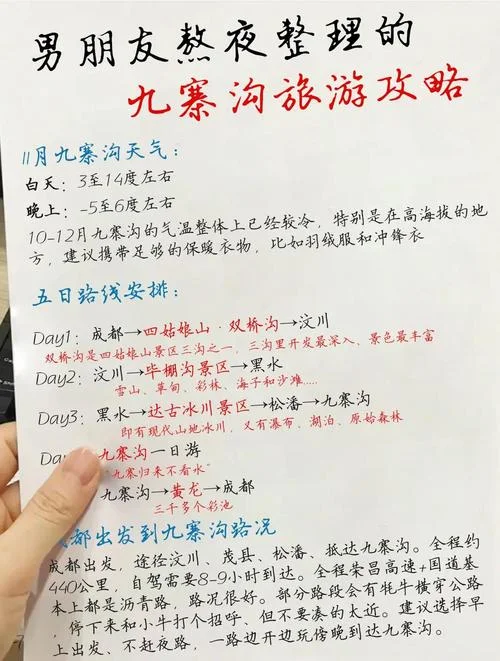 男朋友熬夜整理的
九寨沟旅游攻略
11月九寨沟天气：
白天：3至14度左右
晚上：-5至6度左右
10-12月九寨沟的气温整体上已经较冷，特别是在高海拔的地
方，建议携带足够的保暖衣物，比如羽绒服和冲锋衣
五日路线安排：
Day1：成都→四姑娘山·双桥沟→汶川
双桥沟是四姑娘山景区三沟之一，三沟里开发最深入、景色最丰富
Day2：汶川→毕棚沟景区→黑水
雪山、草甸、彩林、海子和沙滩.....
Day3：黑水→达古冰川景区→松潘→九寨沟
即有现代山地冰川，又有瀑布、湖泊、原始森林
Da 九寨沟一日游
"九寨归来不看水"
九寨沟→黄龙→成都
三千多个彩池
成都出发到九寨沟路况
成都出发，途径汶川、茂县、松潘、抵达九寨沟。全程约
440公里，自驾需要8-9小时到达。全程荣昌高速+国道基
本上都是沥青路，路况很好。部分路段会有牦牛横穿公路
，停下来和小牛打个招呼、但不要凑的太近。建议选择早
上出发、不赶夜路，一路边开边玩傍晚到达九寨沟。